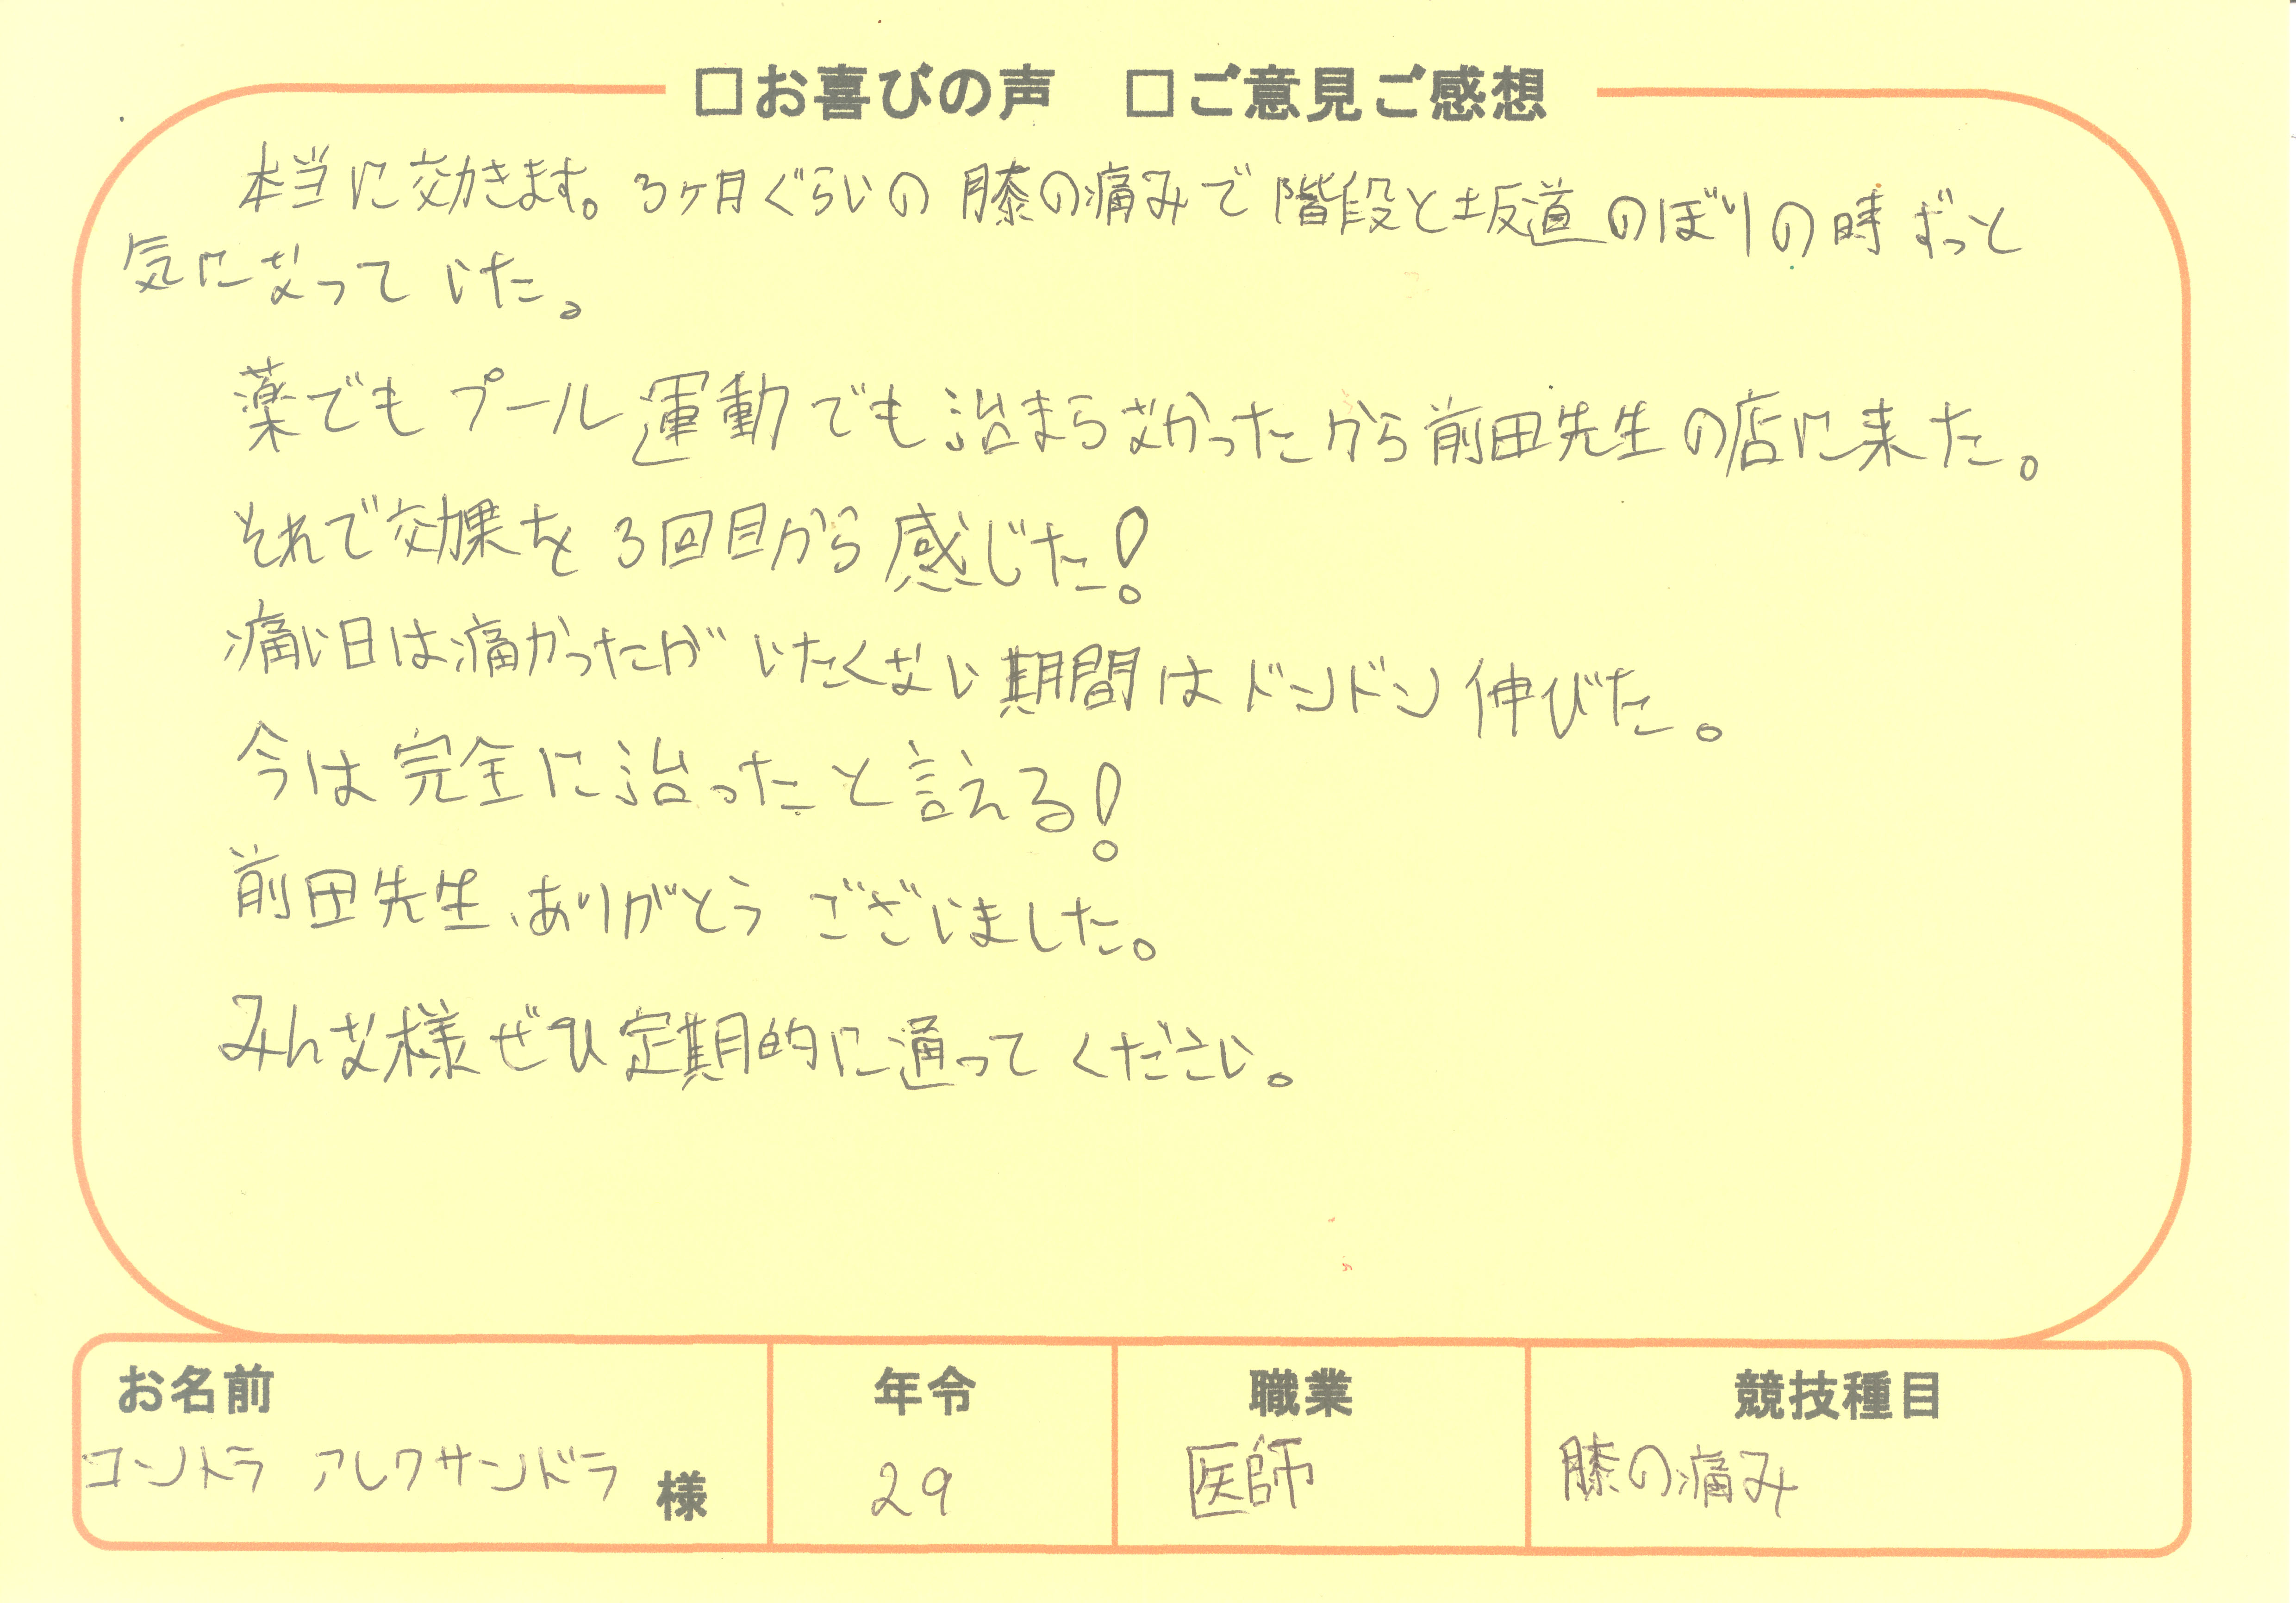 □お喜びの声　□ご意見ご感想
本当に効きます。3ヶ月ぐらいの膝の痛みで階段と坂道のぼりの時ずっと
気になっていた。
薬でもプール運動でも治まらなかったから前田先生の店に来た。
それで効果を3回目から感じた!
痛い日は痛かったがいたくない期間はドンドン伸びた。
今は完全に治ったと言える!
前田先生、ありがとうございました。
みんな様ぜひ定期的に通ってください。
お名前　年令　職業　競技種目
コントラ アレクサンドラ 様　29　医師　膝の痛み